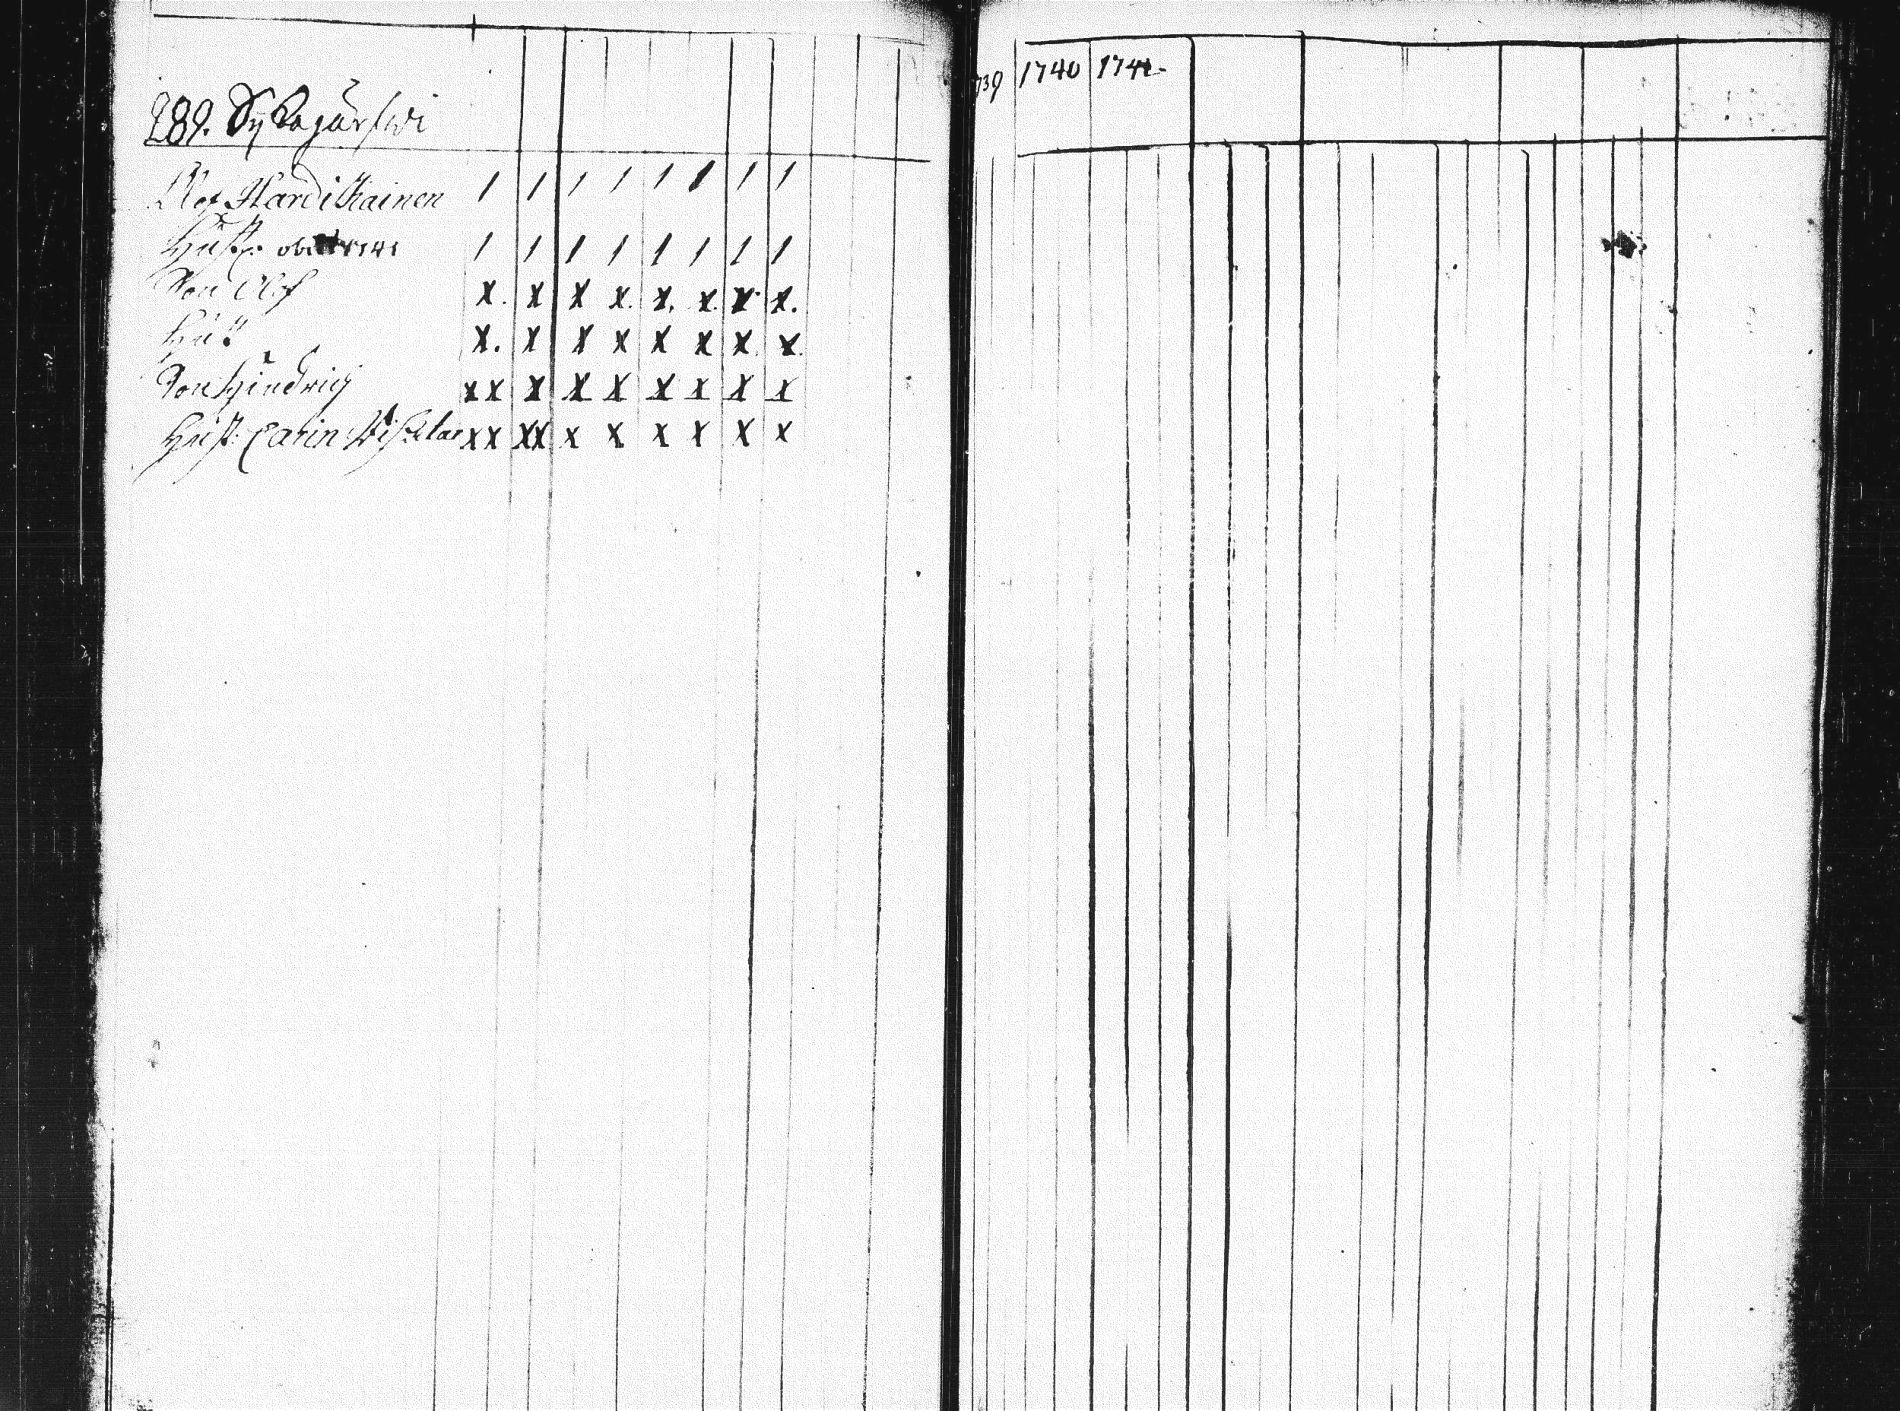 289. Sÿkäjärfwi
Olof Hardikainen 1 1 1 1 1 1 1 1
Hust: obiit 1741 1 1 1 1 1 1 1 1
Son Olof x. x x x. x. x. x. x.
Hust x. x x x x x x. x.
Son Hindrich x x x x x x x x x
Hust: Carin x x xx x x x x x x
739 1740 1741